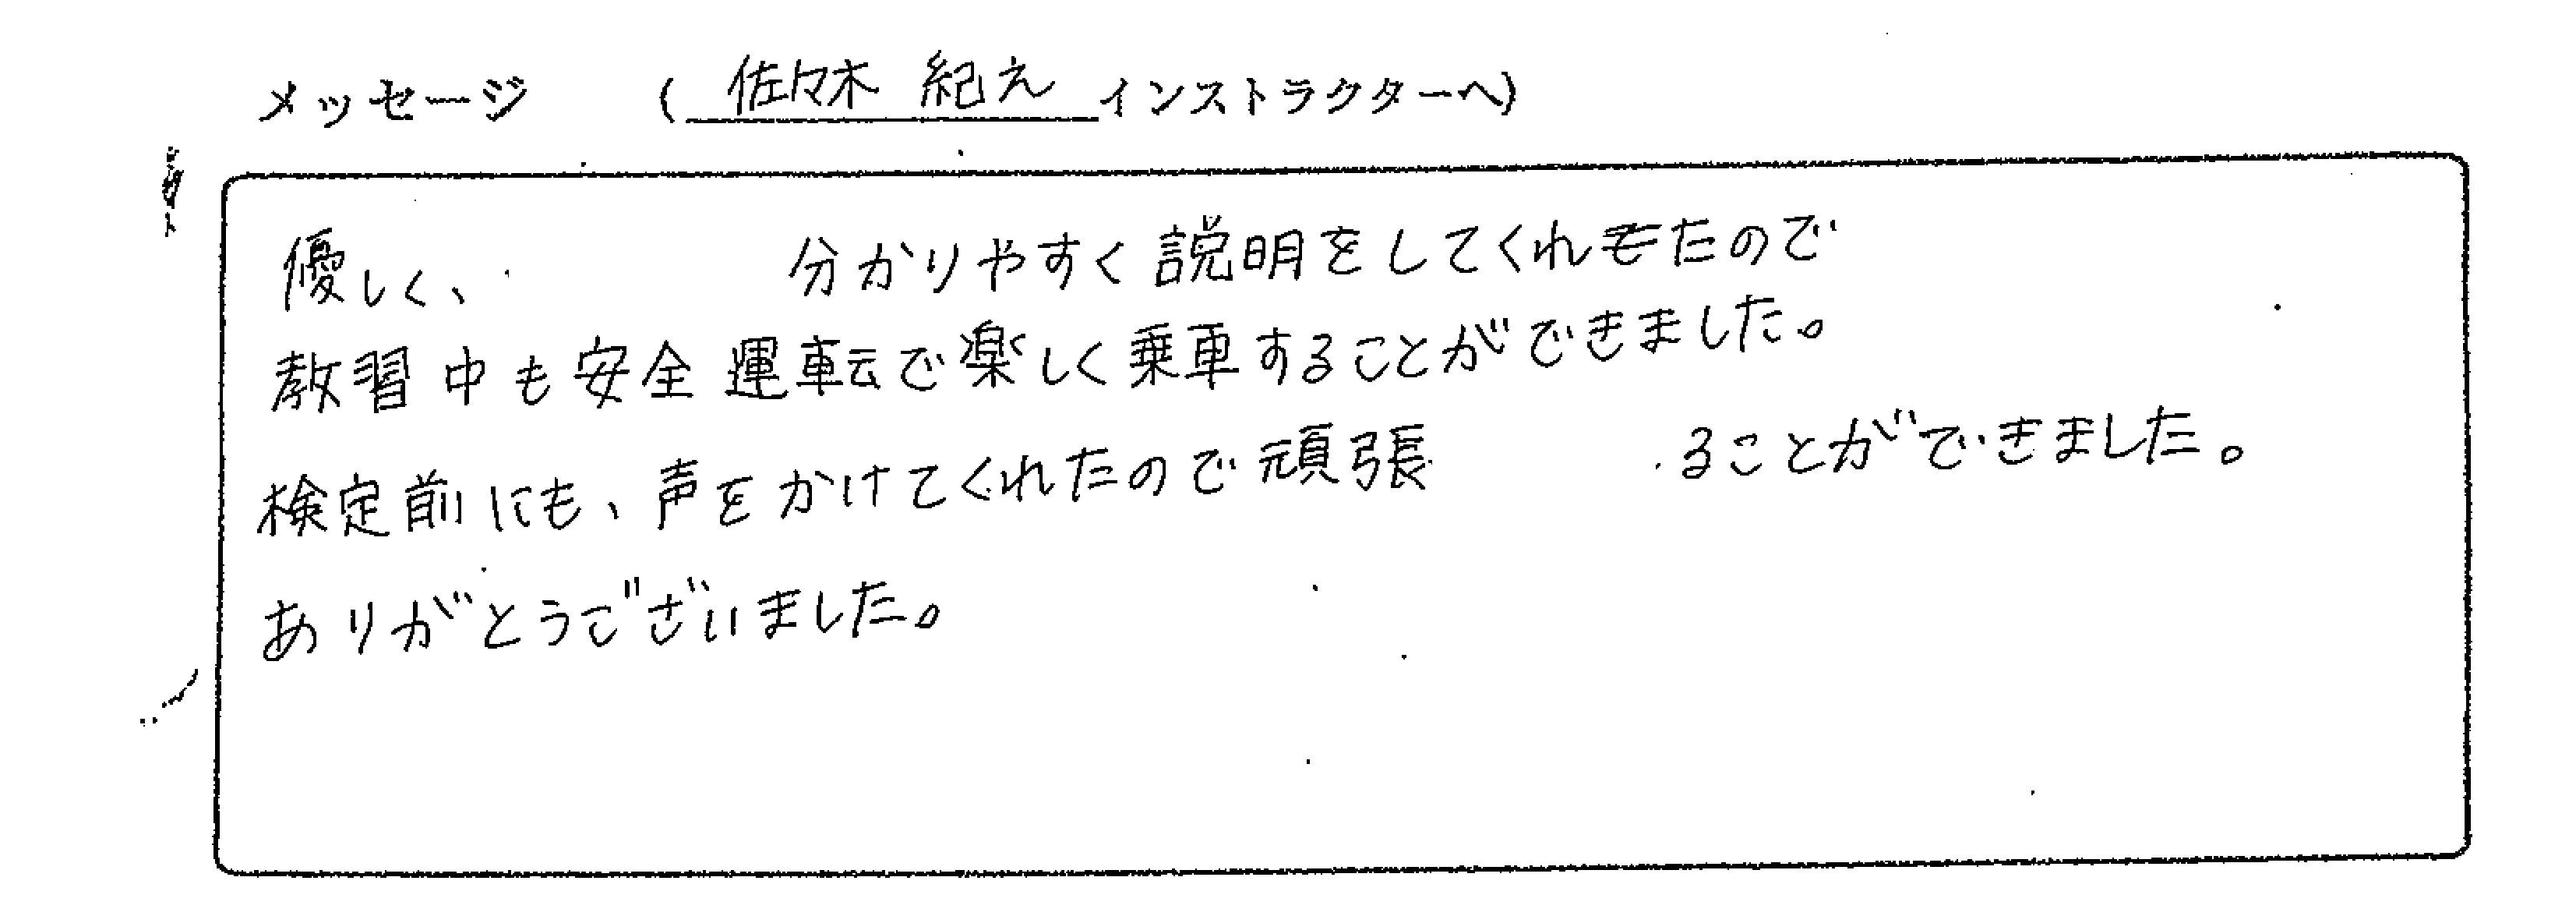 メッセージ (佐々木 紀え インストラクターへ)
優しく、 分かりやすく説明をしてくれたので
教習中も安全運転で楽しく乗車することができました。
検定前にも、声をかけてくれたので頑張 ることができました。
ありがとうございました。